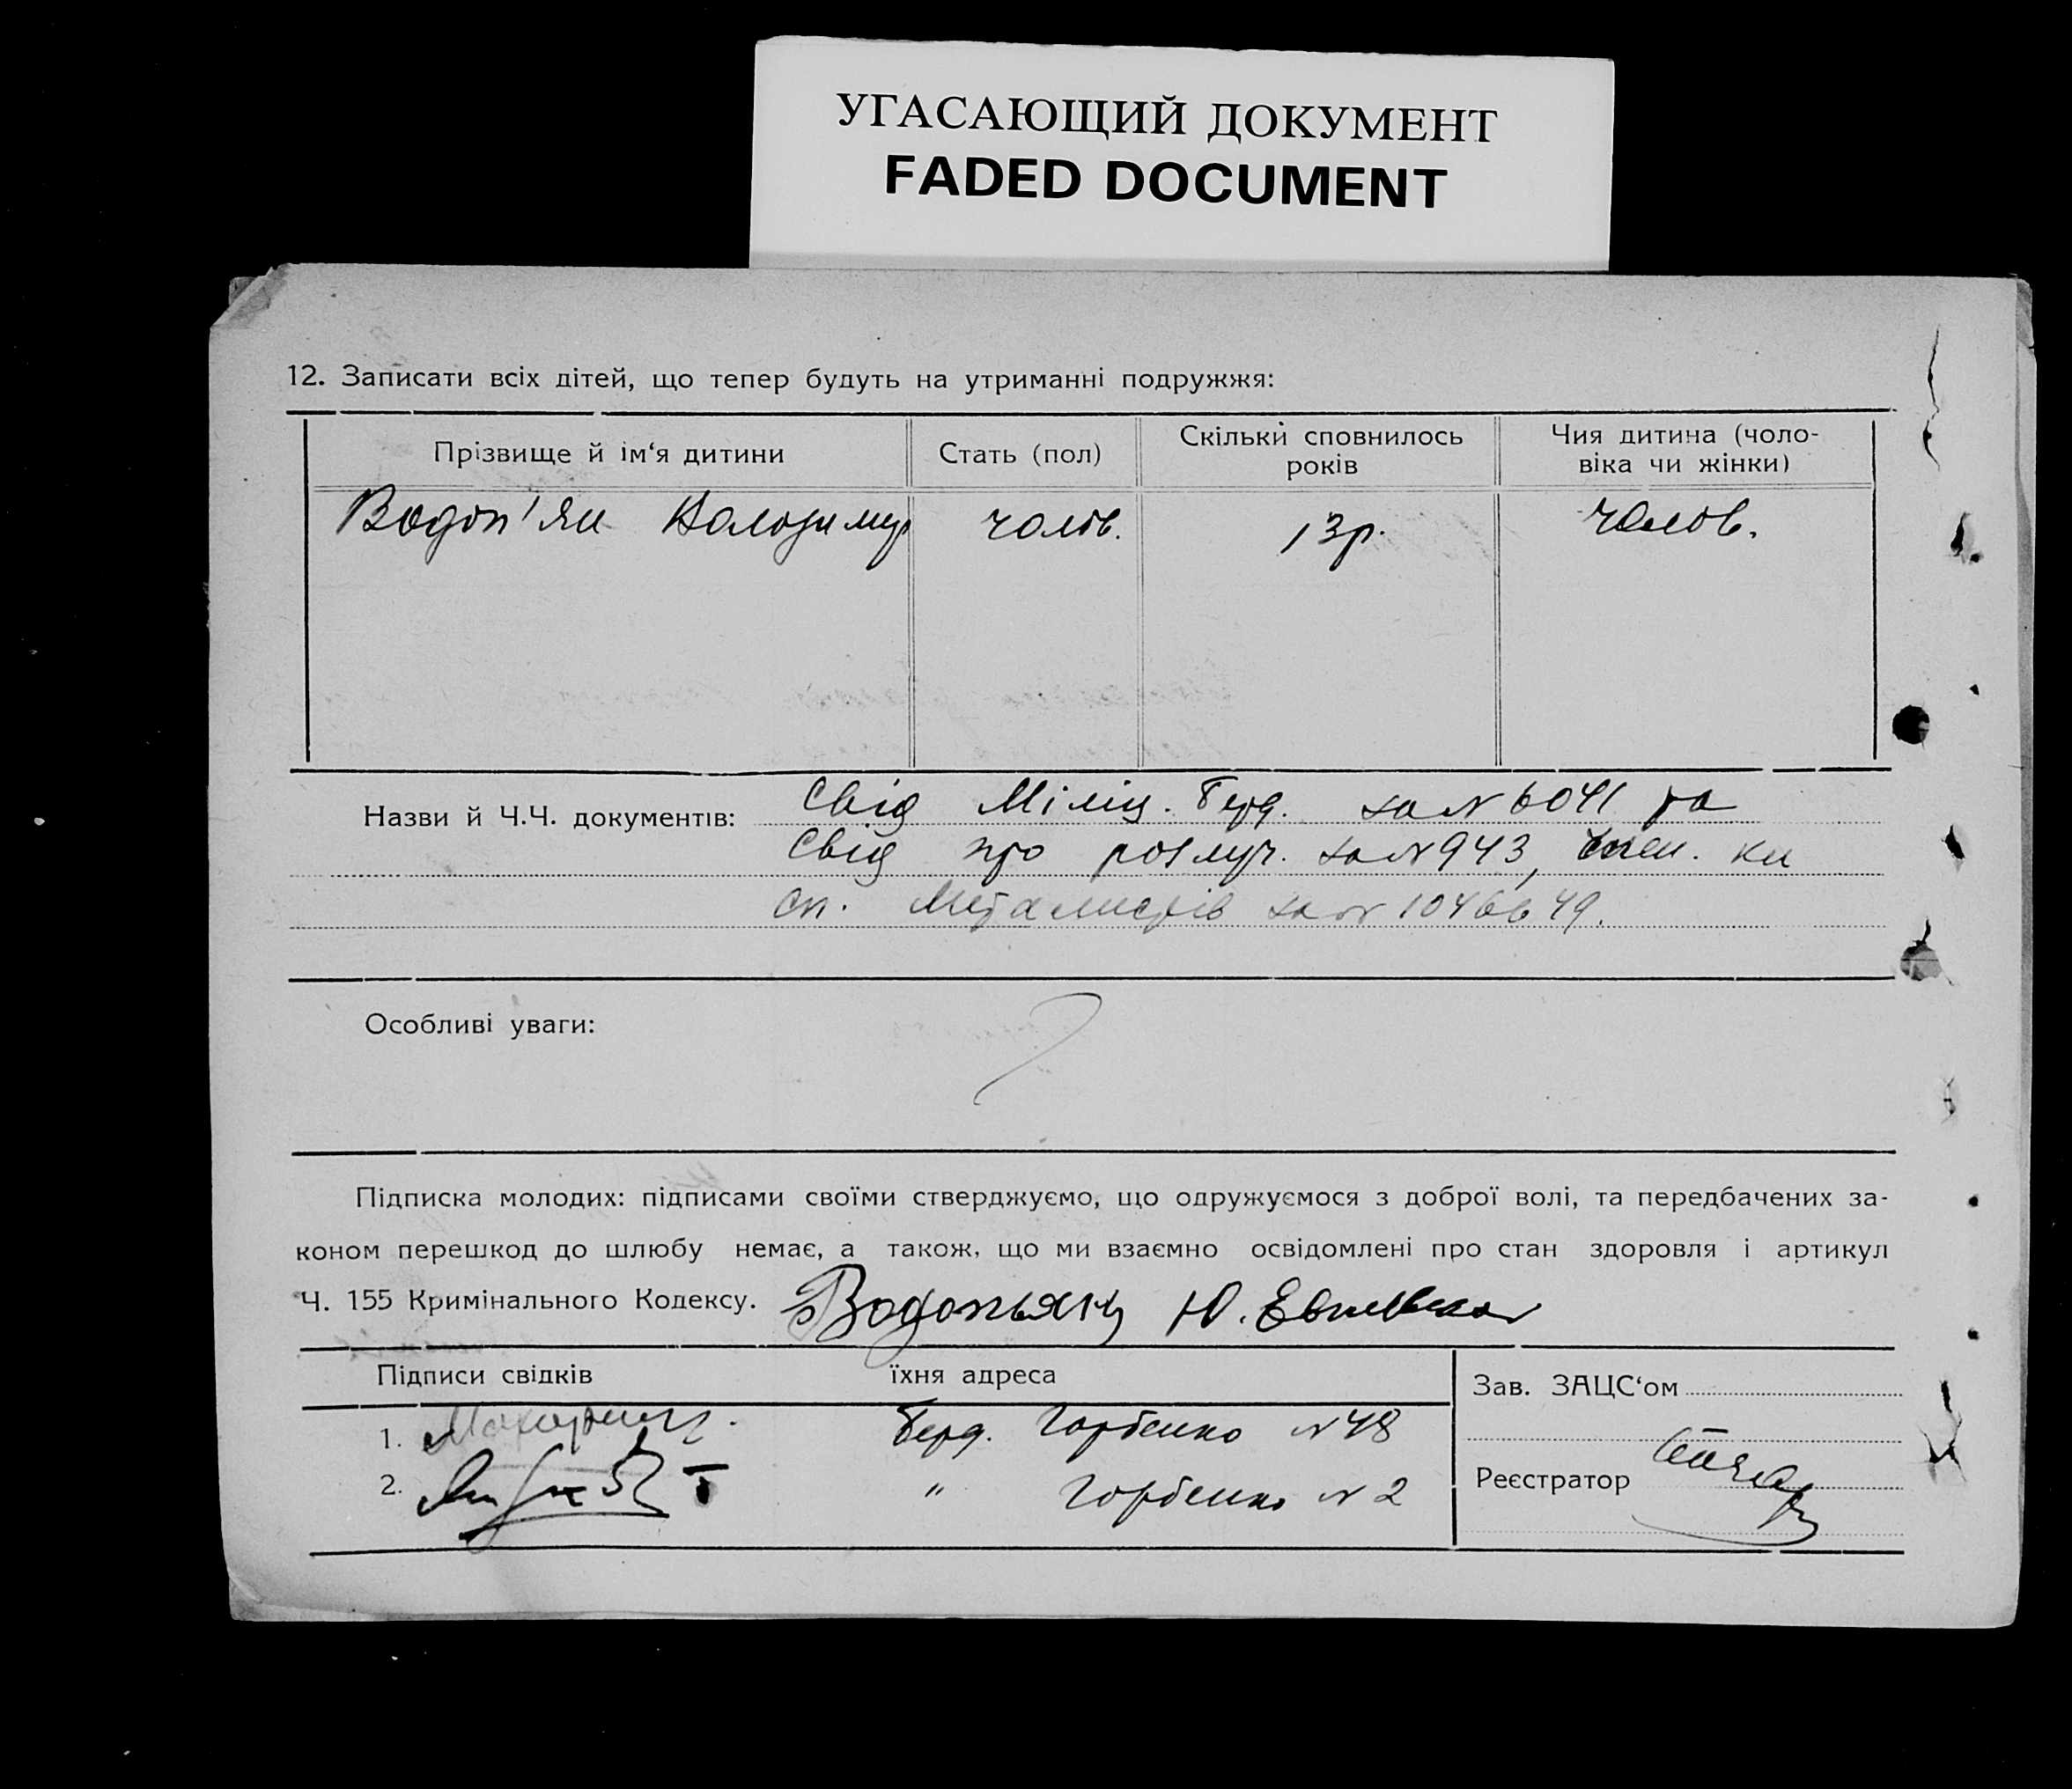 УГАСАЮЩИЙ ДОКУМЕНТ
FADED DOCUMENT
12. Записати всіх дітей, що тепер будуть на утриманні подружжя:
Прізвище й ім‘я дитини
Стать (пол)
Скільки сповнилось
років
Чия дитина (чоло-
віка чи жінки)
Водоп'ян Володимир
чолов.
13р.
чолов.
Назви й Ч.Ч. документів: Свід Міліц. Берд. за № 6041 та
Свід про розлуч. за № 943, член. кн
сп. Металистів за № 1046649.
Особливі уваги:
Підписка молодих: підписами своїми стверджуємо, що одружуємося з доброї волі, та передбачених за-
коном перешкод до шлюбу немає, а також, що ми взаємно освідомлені про стан здоровля і артикул
Ч. 155 Кримінального Кодексу. Водопьянъ Ю.
Підписи свідків
їхня адреса
Зав. ЗАЦС‘ом
1.
Берд. Горбенко № 48
2.
" Горбенко № 2
Реєстратор